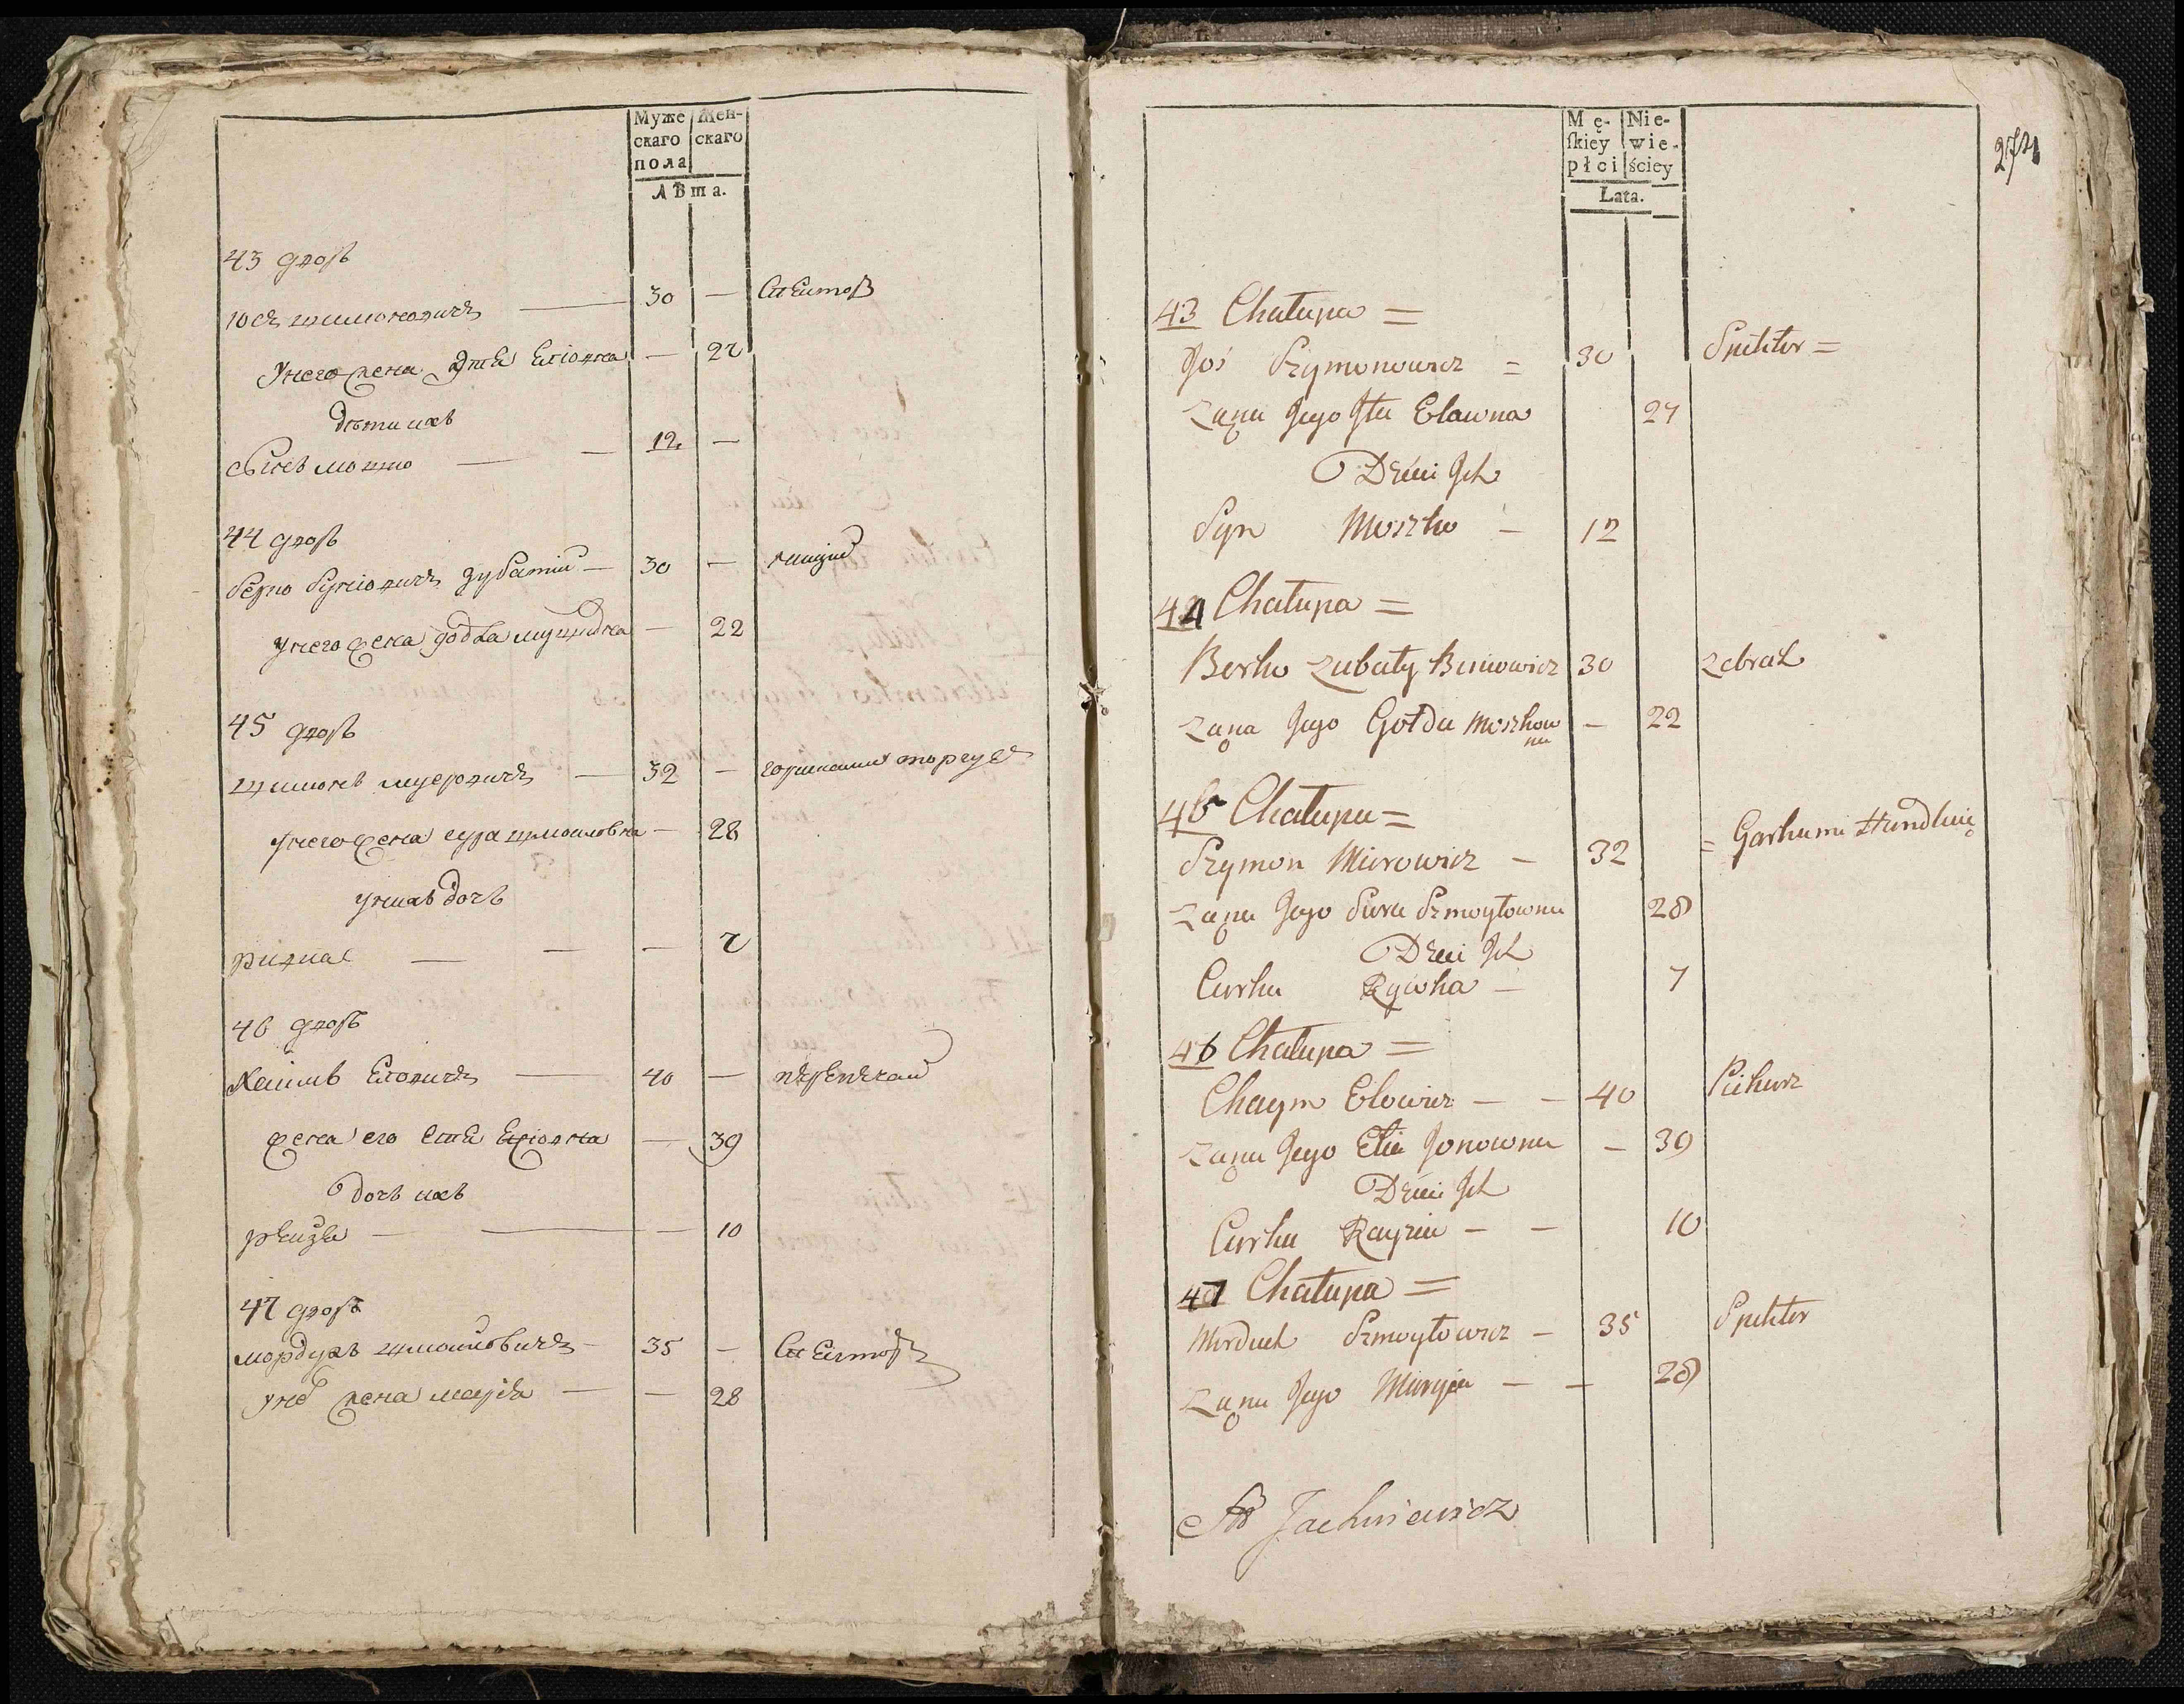 Муже скаго пола
Жен- скаго
Лѣта.
43 дворъ
Юсь Шимоновичъ — 30 —
У него жена Этля Еліовна — 27
Дѣти ихъ
Сынъ Мошко — 12 —
44 дворъ
Берко Буніовичъ Зубатій — 30 —
У него жена Годля Мушковна — 22
45 дворъ
Шимонъ Меровичъ — 32 — горшками торгуе
У него жена Сура Шмойловна — 28
У нихъ дочь
Ривка — 7
46 дворъ
Хаимъ Еловичъ — 40 —
жена его — 39
Дочь ихъ
Рейзя — 10
47 дворъ
Мордухъ Шмойловичъ — 35 —
У не жена Маріа — 28
Mę- skiey płci
Nie- wie- ściey
Lata.
274
43 Chałupa =
Joś Szymonowicz = 30 Spektor =
Żona Jego Ita Elowna 27
Dzieci Jch
Syn Moszko — 12
44 Chałupa =
Berko Zubaty Buniowicz 30 Żebrak
Żona Jego Gołda Moszkowna — 22
45 Chałupa =
Szymon Mierowicz — 32 = Garkami Handluie
Żona Jego Sura Szmoyłowna 28
Dzieci Jch
Curka Rywka — 7
46 Chałupa =
Chaym Elowicz — — 40 Piekarz
Żona Jego Etia Jonowna — 39
Dzieci Jch
Curka Rayzia — — 10
47 Chałupa =
Morduch Szmoyłowicz — 35 Spektor
Żona Jego Maryia — — 28
Jachniewicz